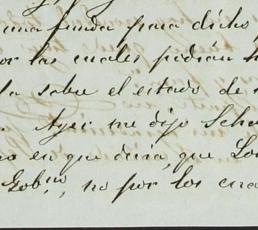 una funda para dicho
por los cuales podrán
la sobre el estado de
Ayer me dijo Scha
en que diria, que Lo
Gobno, no por los cua